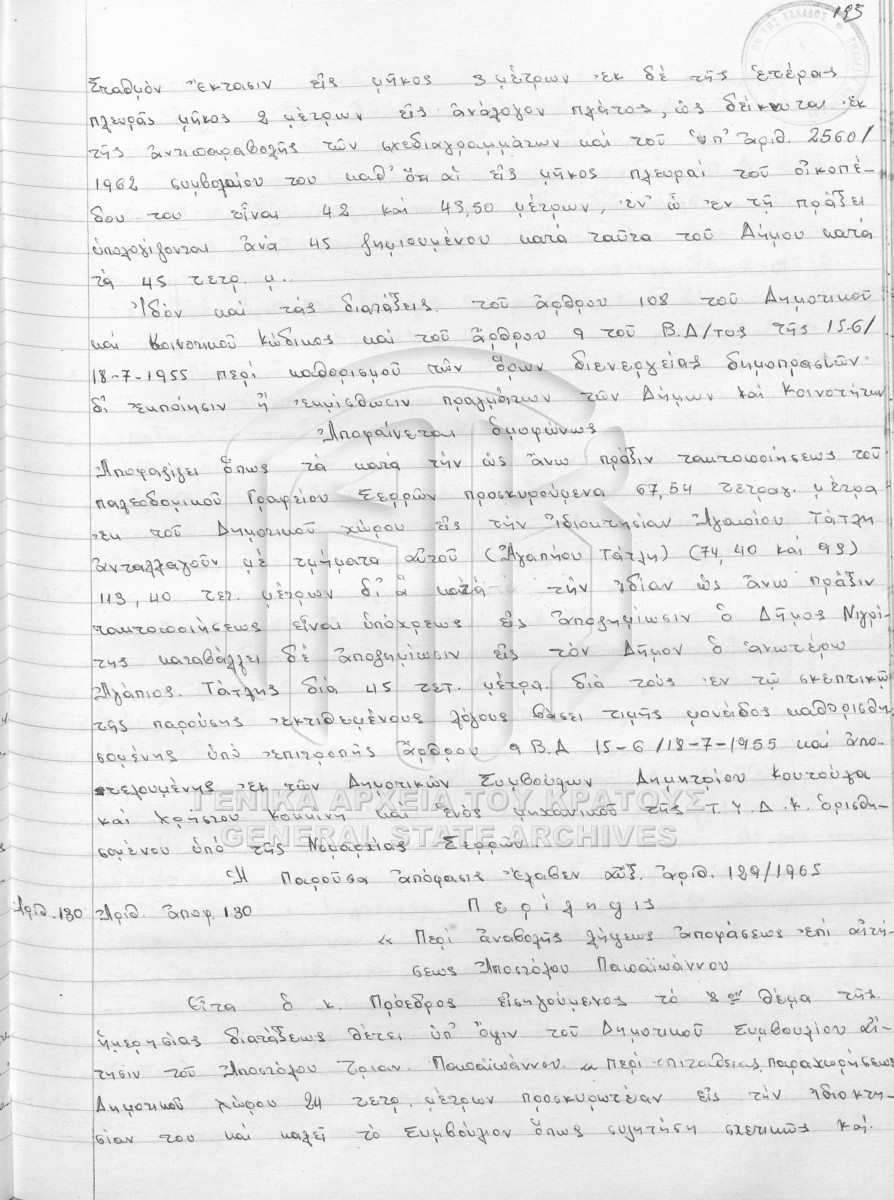 195
Σταθμὸν ἔκτασιν εἰς μῆκος 3 μέτρων ἐκ δὲ τῆς ἑτέρας
πλευρᾶς μῆκος 2 μέτρων εἰς ἀνάλογον πλάτος, ὡς δείκνυται ἐκ
τῆς ἀντιπαραβολῆς τῶν σχεδιαγραμμάτων καὶ τοῦ ὑπ' ἀριθ. 2560/
1962 συμβολαίου του καθ' ὅτι αἱ εἰς μῆκος πλευραὶ τοῦ οἰκοπέ-
δου του εἶναι 42 καὶ 43,50 μέτρων, ἐν ᾧ ἐν τῇ πράξει
ὑπολογίζονται ἀνὰ 45 ζημιουμένου κατὰ ταῦτα τοῦ Δήμου κατὰ
τὰ 45 τετρ. μ.
Ἰδὸν καὶ τὰς διατάξεις τοῦ ἄρθρου 108 τοῦ Δημοτικοῦ
καὶ Κοινοτικοῦ Κώδικος καὶ τοῦ ἄρθρου 9 τοῦ Β.Δ/τος τῆς 15-6/
18-7-1955 περὶ καθορισμοῦ τῶν ὅρων διενεργείας δημοπρασιῶν
δι' ἐκποίησιν ἢ ἐκμίσθωσιν πραγμάτων τῶν Δήμων καὶ Κοινοτήτων
Ἀποφαίνεται ὁμοφώνως
Ἀποφασίζει ὅπως τὰ κατὰ τὴν ὡς ἄνω πρᾶξιν τακτοποιήσεως τοῦ
πολεοδομικοῦ Γραφείου Σερρῶν προσκυρούμενα 67,54 τετραγ. μέτρα
ἐκ τοῦ Δημοτικοῦ χώρου εἰς τὴν ἰδιοκτησίαν Ἀγαπίου Τάτλη
ἀνταλλαγοῦν μὲ τμήματα αὐτοῦ (Ἀγαπίου Τάτλη) (74,40 καὶ 93)
113,40 τετ. μέτρων δι' ἃ κατὰ τὴν ἰδίαν ὡς ἄνω πρᾶξιν
τακτοποιήσεως εἶναι ὑπόχρεως εἰς ἀποζημίωσιν ὁ Δῆμος Νιγρί-
της καταβάλλει δὲ ἀποζημίωσιν εἰς τὸν Δῆμον ὁ ἀνωτέρω
Ἀγάπιος Τάτλης διὰ 45 τετ. μέτρα διὰ τοὺς ἐν τῷ σκεπτικῷ
τῆς παρούσης ἐκτιθεμένους λόγους βάσει τιμῆς μονάδος καθορισθη-
σομένης ὑπὸ ἐπιτροπῆς ἄρθρου 9 Β.Δ 15-6/18-7-1955 καὶ ἀπο-
τελουμένης ἐκ τῶν Δημοτικῶν Συμβούλων Δημητρίου Κουτούγα
καὶ Χρήστου Κοκκίνη καὶ ἑνὸς μηχανικοῦ τῆς Τ.Υ.Δ.Κ. ὁρισθη-
σομένου ὑπὸ τῆς Νομαρχίας Σερρῶν.
Ἡ Παροῦσα ἀπόφασις ἔλαβεν αὔξ. ἀριθ. 129/1965
Ἀριθ. 130 Ἀριθ. ἀποφ. 130 Περίληψις
« Περὶ ἀναβολῆς λήψεως ἀποφάσεως ἐπὶ αἰτή-
σεως Ἀποστόλου Παπαϊωάννου
Εἶτα ὁ κ. Πρόεδρος εἰσηγούμενος τὸ 8ον θέμα τῆς
ἡμερησίας διατάξεως θέτει ὑπ' ὄψιν τοῦ Δημοτικοῦ Συμβουλίου αἴ-
τησιν τοῦ Ἀποστόλου Τριαν. Παπαϊωάννου « Περὶ παραχωρήσεως
Δημοτικοῦ χώρου 24 τετρ. μέτρων προσκυρωτέαν εἰς τὴν ἰδιοκτη-
σίαν του καὶ καλεῖ τὸ Συμβούλιον ὅπως συζητήσῃ σχετικῶς καὶ
ΓΕΝΙΚΑ ΑΡΧΕΙΑ ΤΟΥ ΚΡΑΤΟΥΣ
GENERAL STATE ARCHIVES